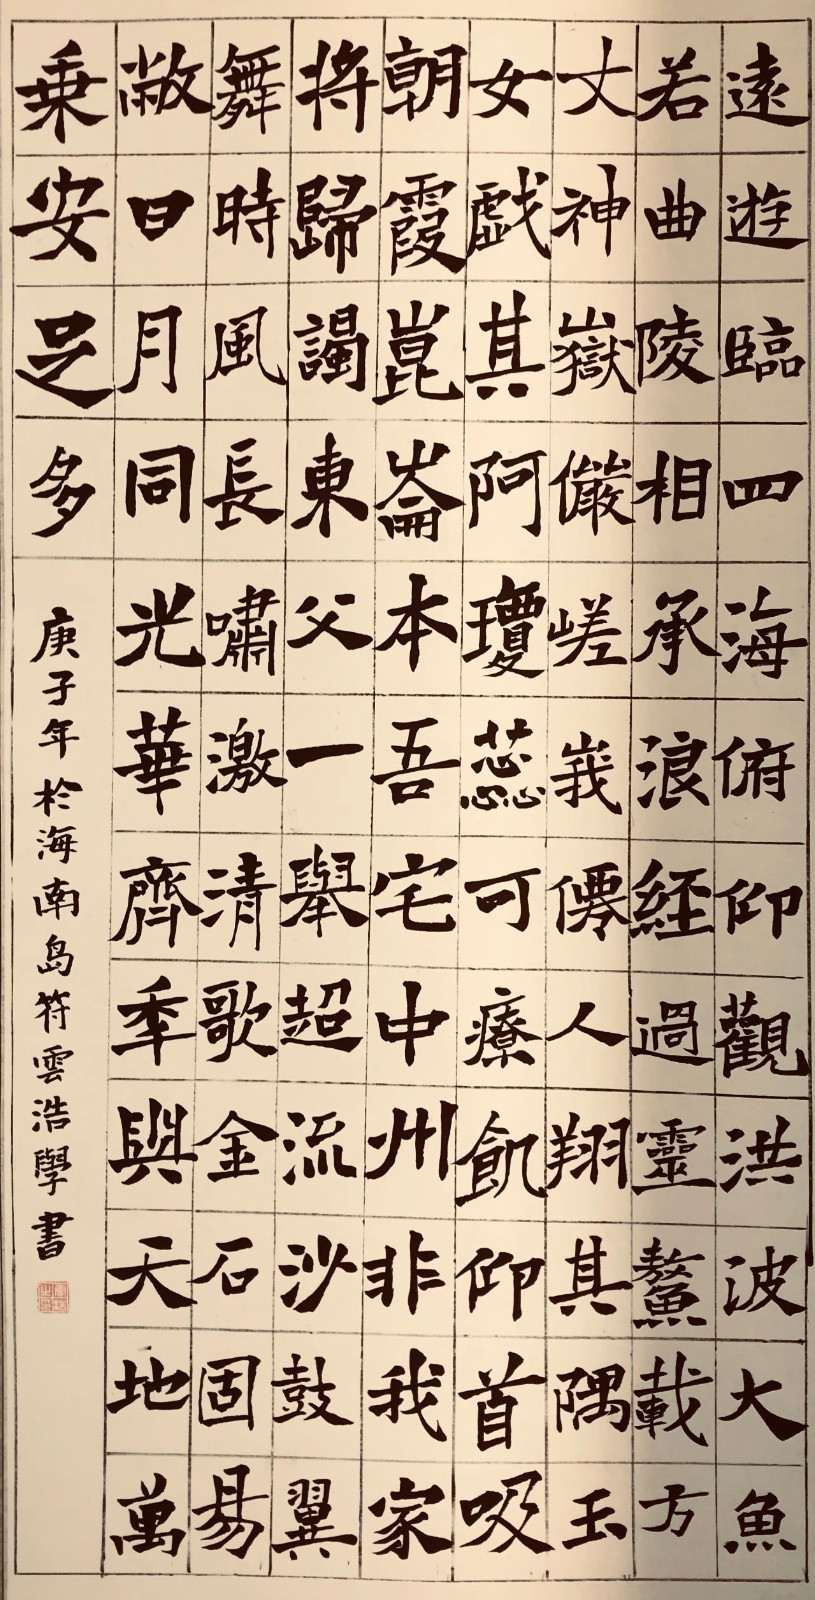 遠遊臨四海俯仰觀洪波大魚
若曲陵相承浪經過靈鰲載方
丈神嶽儼嵯峨僊人翔其隅玉
女戯其阿瓊蕊可療飢仰首吸
朝霞崑崙本吾宅中州非我家
將歸謁東父一舉超流沙鼓翼
舞時風長嘯激清歌金石固易
敝日月同光華齊秊與天地萬
乘安足多
庚子年於海南岛符雲浩學書